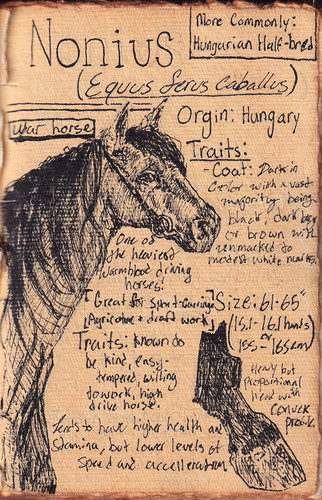 More Commonly:
Hungarian Half-bred
Nonius
(Equus ferus caballus)
War horse
Orgin: Hungary
Traits:
- Coat: Dark in
Color with a vast
majority being
black, dark bay
or brown with
unmarked to
modest white marks.
One of
the heaviest
warmblood driving
horses!
[Great for sport-carriage]
Agriculture + draft work]
Size: 61-65"
(15.1-16.1 hands)
(155-165cm)
Traits: known to
be kind, easy-
tempered, willing
to work, high
drive horse.
Heavy but
proportional
head with
convex
profile.
Tends to have higher health and
Stamina, but lower levels of
Speed and accelleration